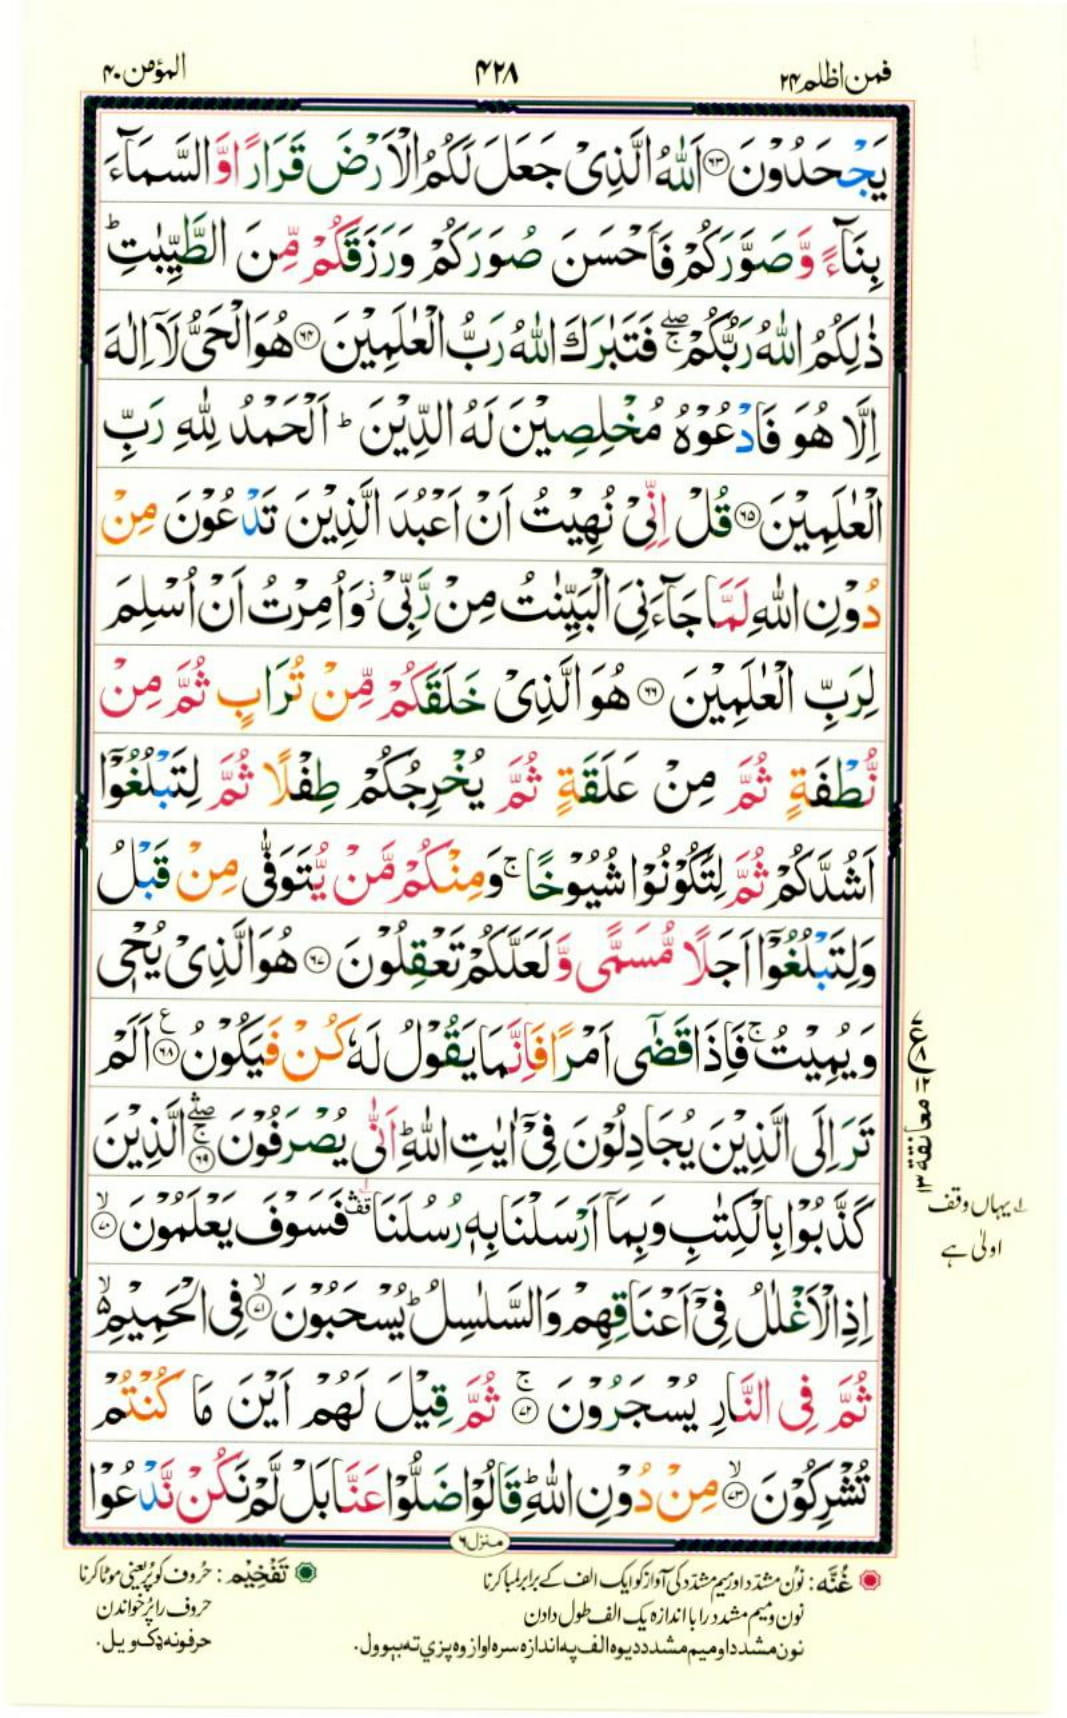 فمن اظلم ۲۴
۴۲۸
المؤمن ۴۰
يَجْحَدُوْنَ ﴿۶۳﴾ اَللّٰهُ الَّذِیْ جَعَلَ لَكُمُ الْاَرْضَ قَرَارًا وَّ السَّمَآءَ
بِنَآءً وَّ صَوَّرَكُمْ فَاَحْسَنَ صُوَرَكُمْ وَ رَزَقَكُمْ مِّنَ الطَّيِّبٰتِ ؕ
ذٰلِكُمُ اللّٰهُ رَبُّكُمْ ۚۖ فَتَبٰرَكَ اللّٰهُ رَبُّ الْعٰلَمِيْنَ ﴿۶۴﴾ هُوَ الْحَیُّ لَاۤ اِلٰهَ
اِلَّا هُوَ فَادْعُوْهُ مُخْلِصِيْنَ لَهُ الدِّيْنَ ؕ اَلْحَمْدُ لِلّٰهِ رَبِّ
الْعٰلَمِيْنَ ﴿۶۵﴾ قُلْ اِنِّیْ نُهِيْتُ اَنْ اَعْبُدَ الَّذِيْنَ تَدْعُوْنَ مِنْ
دُوْنِ اللّٰهِ لَمَّا جَآءَنِیَ الْبَيِّنٰتُ مِنْ رَّبِّیْ ؗ وَ اُمِرْتُ اَنْ اُسْلِمَ
لِرَبِّ الْعٰلَمِيْنَ ﴿۶۶﴾ هُوَ الَّذِیْ خَلَقَكُمْ مِّنْ تُرَابٍ ثُمَّ مِنْ
نُّطْفَةٍ ثُمَّ مِنْ عَلَقَةٍ ثُمَّ يُخْرِجُكُمْ طِفْلًا ثُمَّ لِتَبْلُغُوْۤا
اَشُدَّكُمْ ثُمَّ لِتَكُوْنُوْا شُيُوْخًا ۚ وَ مِنْكُمْ مَّنْ يُّتَوَفّٰی مِنْ قَبْلُ
وَ لِتَبْلُغُوْۤا اَجَلًا مُّسَمًّی وَّ لَعَلَّكُمْ تَعْقِلُوْنَ ﴿۶۷﴾ هُوَ الَّذِیْ يُحْیٖ
وَ يُمِيْتُ ۚ فَاِذَا قَضٰۤی اَمْرًا فَاِنَّمَا يَقُوْلُ لَهٗ كُنْ فَيَكُوْنُ ﴿۶۸﴾ اَلَمْ
تَرَ اِلَی الَّذِيْنَ يُجَادِلُوْنَ فِیْۤ اٰيٰتِ اللّٰهِ ؕ اَنّٰی يُصْرَفُوْنَ ﴿۶۹﴾ الَّذِيْنَ
كَذَّبُوْا بِالْكِتٰبِ وَ بِمَاۤ اَرْسَلْنَا بِهٖ رُسُلَنَا قف فَسَوْفَ يَعْلَمُوْنَ ﴿۷۰﴾
اِذِ الْاَغْلٰلُ فِیْۤ اَعْنَاقِهِمْ وَ السَّلٰسِلُ ؕ يُسْحَبُوْنَ ﴿۷۱﴾ فِی الْحَمِيْمِ ۙ
ثُمَّ فِی النَّارِ يُسْجَرُوْنَ ﴿۷۲﴾ ثُمَّ قِيْلَ لَهُمْ اَيْنَ مَا كُنْتُمْ
تُشْرِكُوْنَ ﴿۷۳﴾ مِنْ دُوْنِ اللّٰهِ ؕ قَالُوْا ضَلُّوْا عَنَّا بَلْ لَّمْ نَكُنْ نَّدْعُوْا
منزل ۶
معانقة ۱۳
یہاں وقف
اولیٰ ہے
غُنَّه : نون مشدد اور میم مشدد کی آواز کو ایک الف کے برابر لمبا کرنا
نون و میم مشدد را با اندازه یک الف طول دادن
نون مشدد او میم مشدد دیوه الف په اندازه سره اواز وه پزې ته بېوول.
تَفْخِيْم : حروف کو پُر یعنی موٹا کرنا
حروف را پُر خواندن
حرفونه ډک ویل.